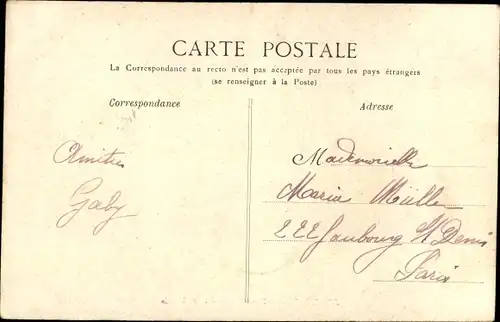 CARTE POSTALE
La Correspondance au recto n'est pas acceptée par tous les pays étrangers
(se renseigner à la Poste)
Correspondance
Amitiés
Gaby
Adresse
Mademoiselle
Maria Müller
222 faubourg St Denis
Paris